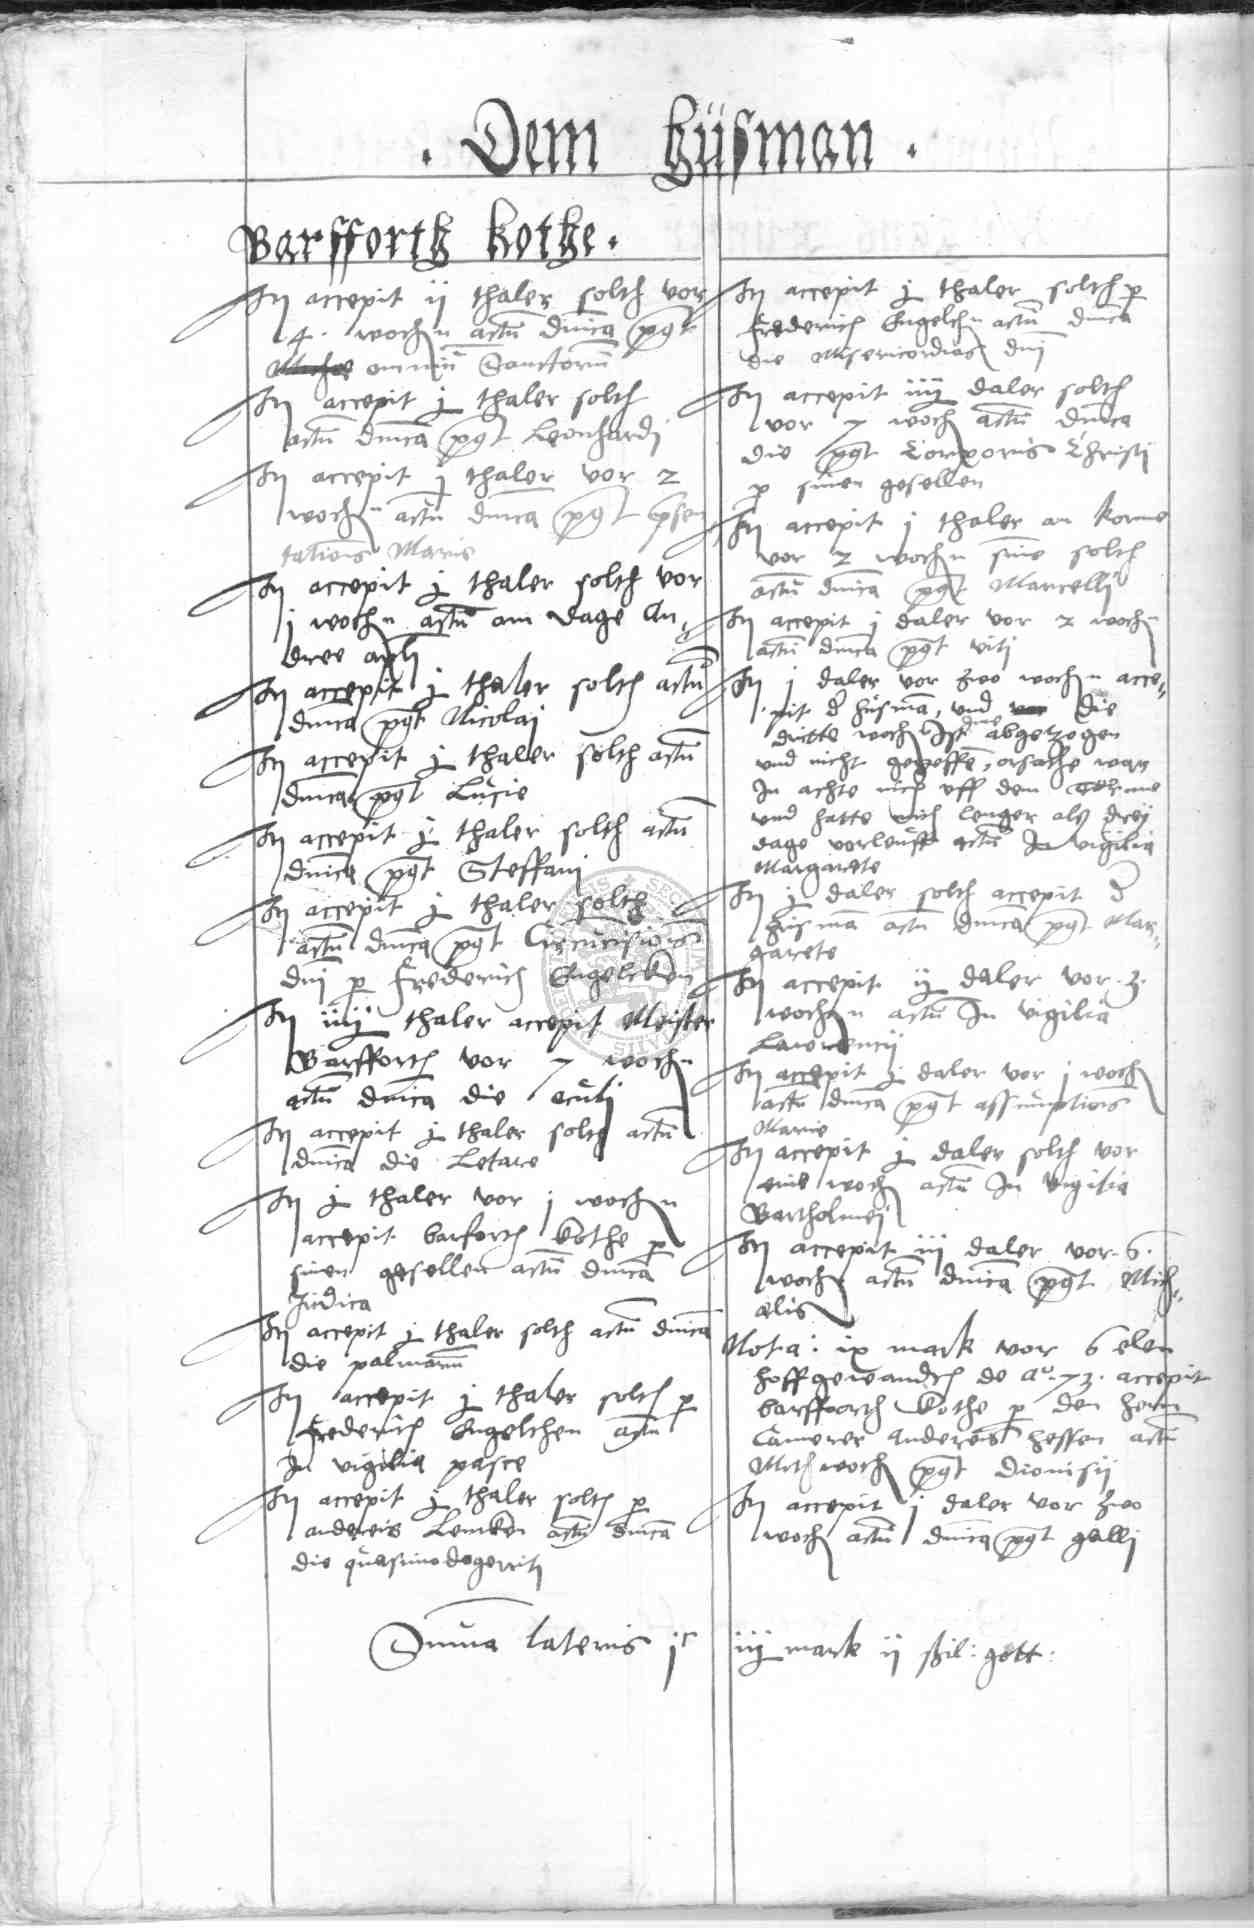 . Dem Hüsman .
Barfforth kothe .
Itꝫ accepit ij thaler solth vor
4 · wochn actu dnica pqt
omniu Sanctoru
Itꝫ accepit j thaler solth
actu dnica pqt Leonhardj
Itꝫ accepit j thaler vor 2
wochn actu dnica pqt psen
tationis Marie
Itꝫ accepit j thaler solth vor
j wochn actu am dage An
dree apli
Itꝫ accepit j thaler solth actu
dnica pqt Nicolaj
Itꝫ accepit j thaler solth actu
dnica pqt Lucie
Itꝫ accepit j thaler solth actu
dnica pqt Steffani
Itꝫ accepit j thaler solth
actu dnica pqt Circucisionis
dnj p Frederich Engelcken
Itꝫ iiij thaler accepit Meister
Barfforth vor 7 wochn
actu dnica die oculj
Itꝫ accepit j thaler solth actu
dnica die Letare
Itꝫ j thaler vor j wochn
accepit barforth kothe p
sinen gesellen actu dnica
Judica
Itꝫ accepit j thaler solth actu dnica
die palmaru
Itꝫ accepit j thaler solth p
Frederich Engelchen actu
In vigilia pasce
Itꝫ accepit j thaler solth p
andereis Lemken actu dnica
die quasimodogenitj
Itꝫ accepit j thaler solth p
Frederich Engelchn actu dnica
die Misericordias dnj
Itꝫ accepit iiij daler solth
vor 7 woch actu dnica
die pqt Corporis Christi
p sinen gesellen
Itꝫ accepit j thaler an korne
vor 2 wochn sins solth
actu dnica pqt Marcellj
Itꝫ accepit j daler vor 2 wochn
actu dnica pqt vitj
Itꝫ j daler vor zwo wochn acce
pit d husma, und die
dritte woch Ist abgetzogen
und nicht gegeffe, orsache was
In achte nich uff dem
und hatte nich lenger als drej
dage vorleufft actu In vigilia
Margarete
Itꝫ j daler solth accepit d
husma actu dnica pqt Mar
garete
Itꝫ accepit ij daler vor · 3 ·
wochn actu In vigilia
Laurencij
Itꝫ accepit j daler vor j woch
actu dnica pqt assumptionis
Marie
Itꝫ accepit j daler solth vor
eine woch actu In vigilia
Bartholmej
Itꝫ accepit iij daler vor · 6 ·
woch actu dnica pqt Mich
aelis
Nota : ix mark vor 6 elen
hoffgewandth de aº · 73 · accepit
barfforth kothe p den hern
Camerer andereis hessen actu
Mithwoch pqt dionisij
Itꝫ accepit j daler vor zwo
woch actu dnica pqt gallj
Suma lateris jᶜ iiij mark ij shil : gott :